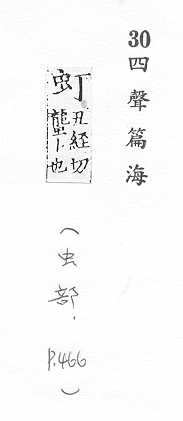 30四聲篇海
虰
丑経切
蠪丨也
(虫部, P.466)